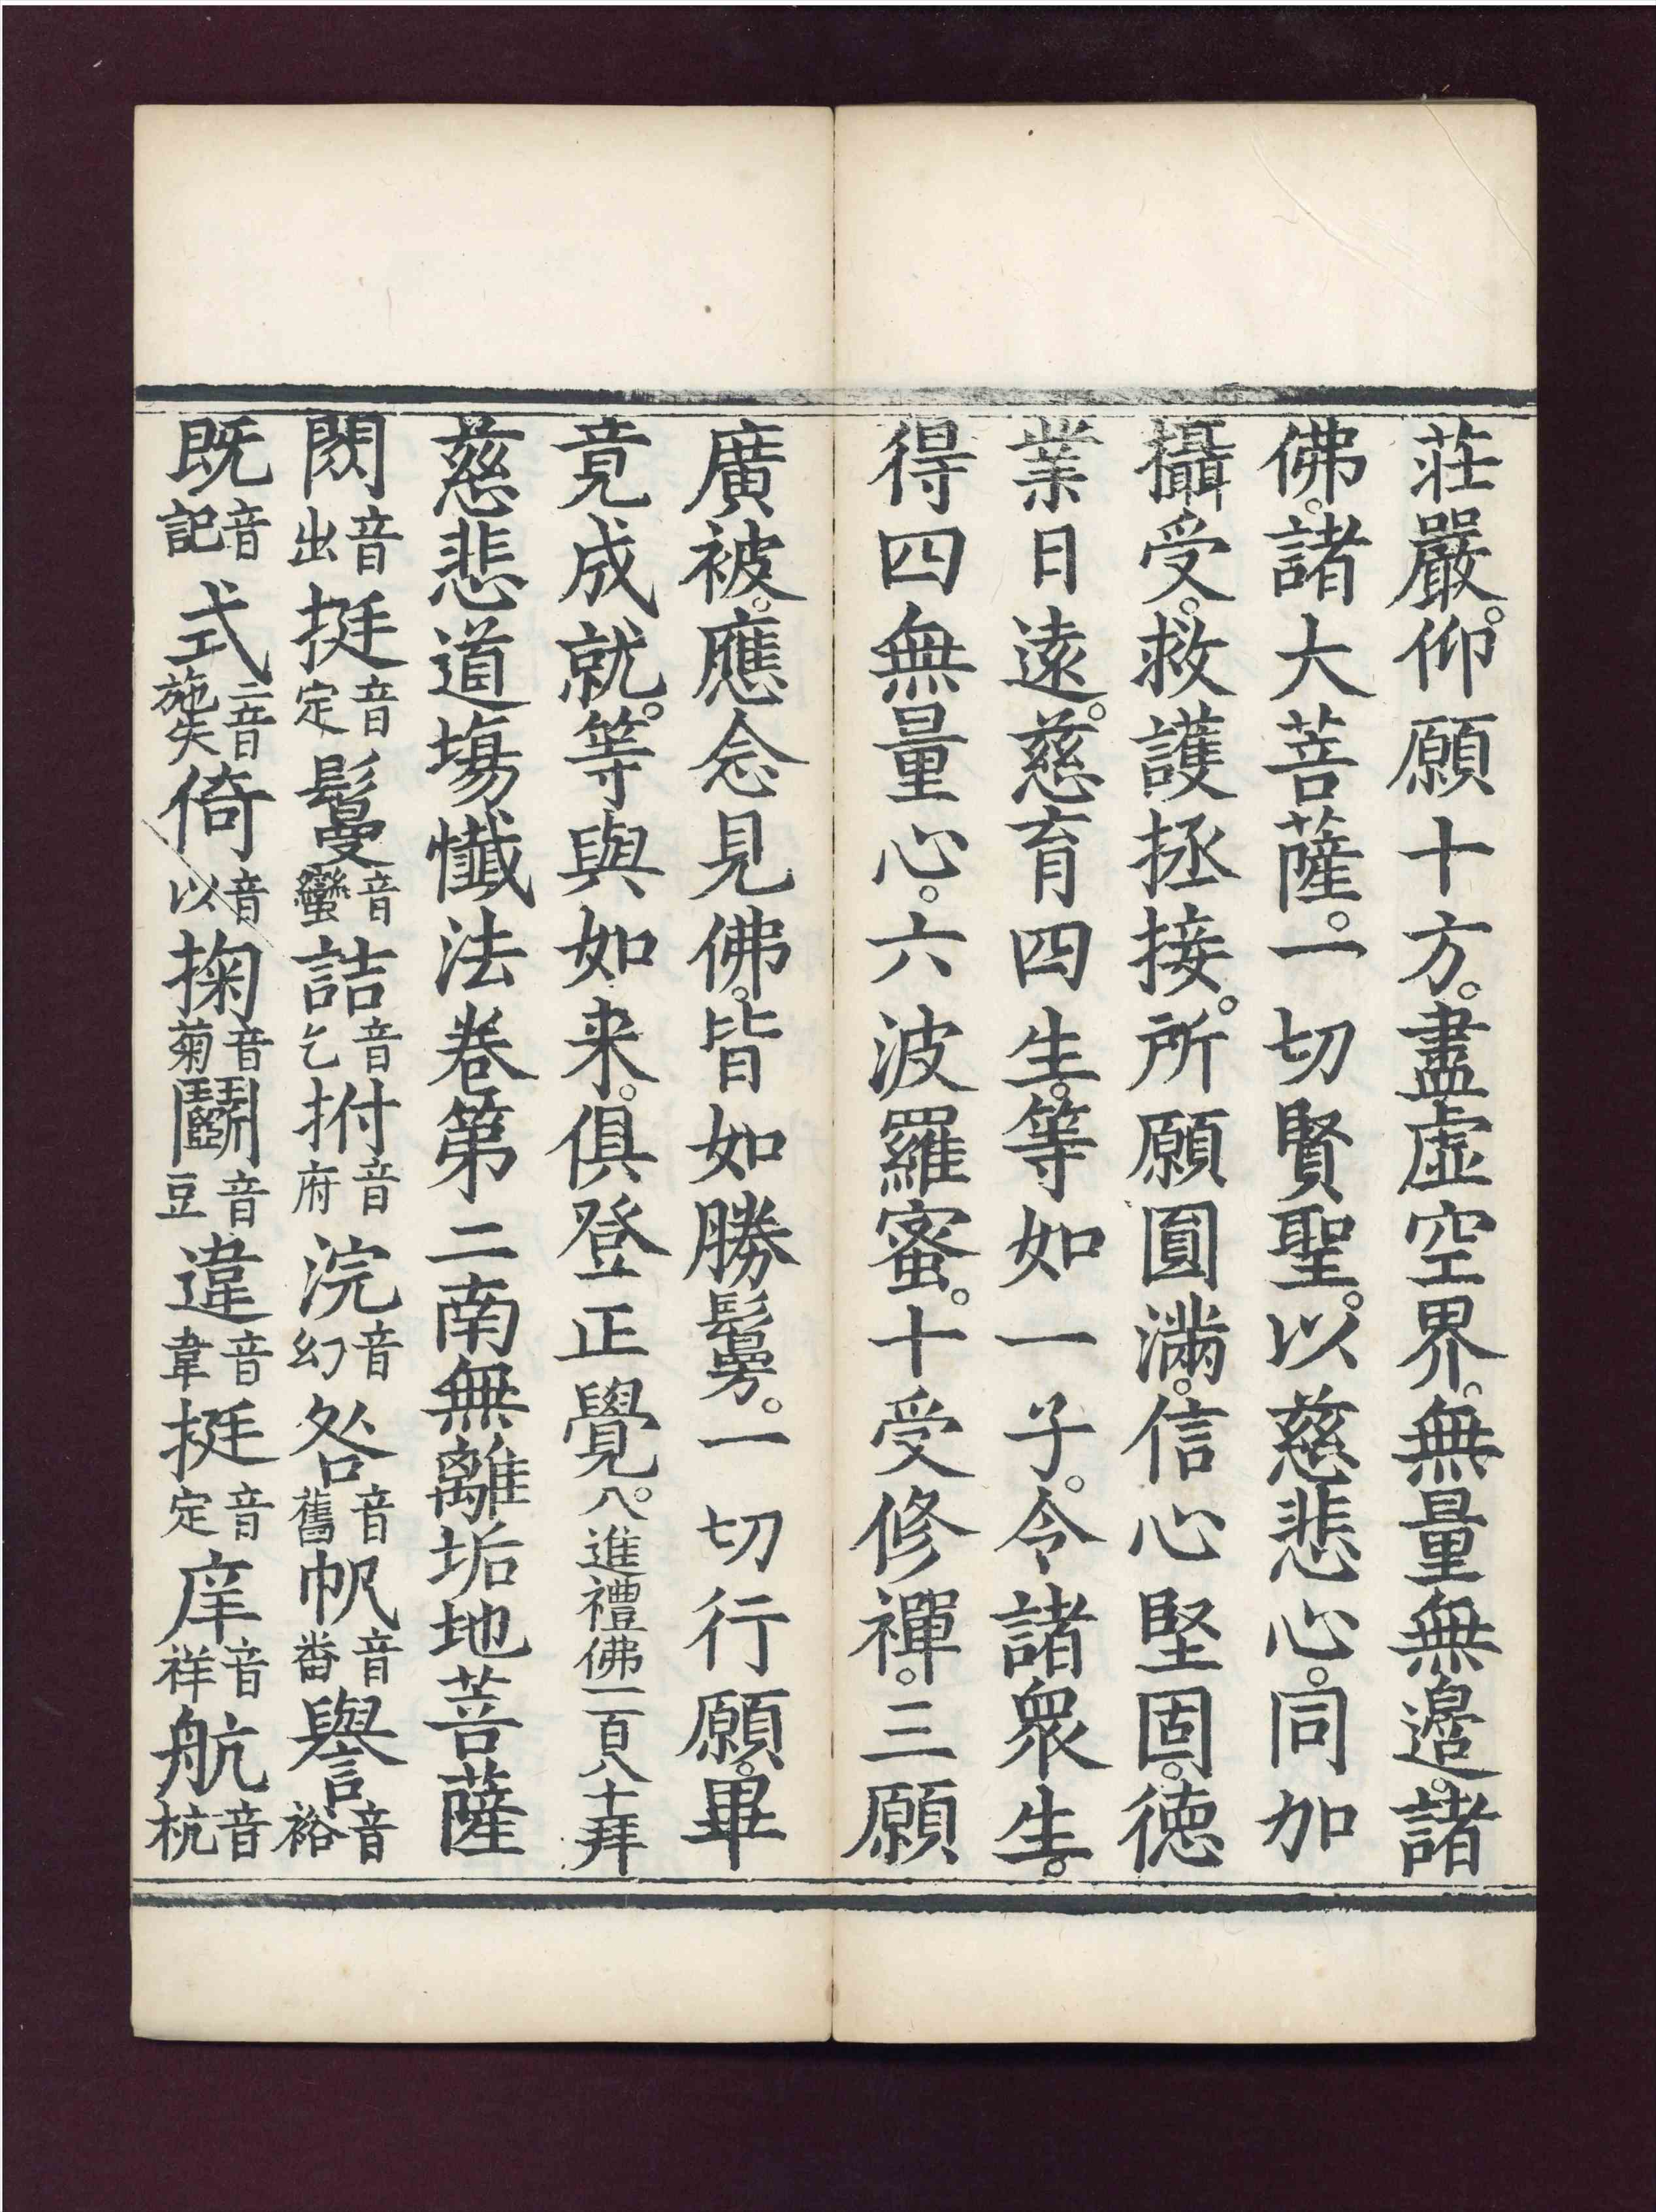 莊嚴。仰願十方。盡虛空界。無量無邊。諸
佛。諸大菩薩。一切賢聖。以慈悲心。同加
攝受。救護拯接。所願圓滿。信心堅固。徳
業日遠。慈育四生。等如一子。令諸衆生。
得四無量心。六波羅蜜。十受修禪。三願
廣被。應念見佛。皆如勝鬘。一切行願。畢
竟成就。等與如来。俱登正覺。八進禮佛一百八十拜
慈悲道塲懺法卷第二南無離垢地菩薩
閦音出挺音定鬘音蠻詰音乞拊音府浣音幻咎音舊帆音畨譽音裕
既音記式二音施失倚音以掬音菊鬪音豆違音韋挺音定庠音祥航音杭